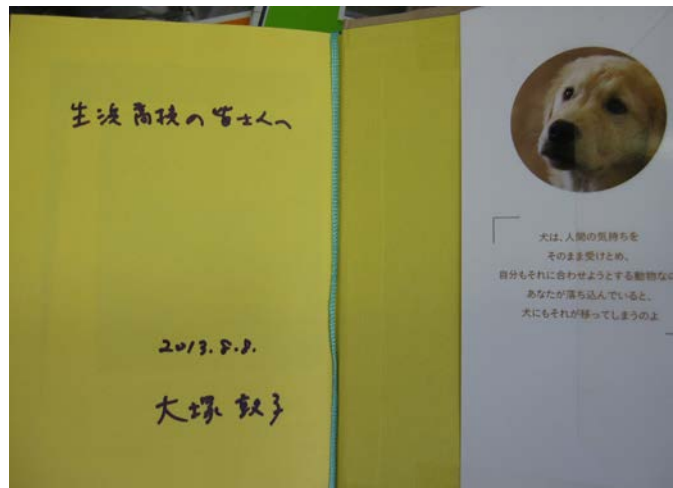 生浜高校の皆さんへ
2013.8.8.
大塚敦子
犬は、人間の気持ちを
そのまま受けとめ、
自分もそれに合わせようとする動物なの
あなたが落ち込んでいると、
犬にもそれが移ってしまうのよ